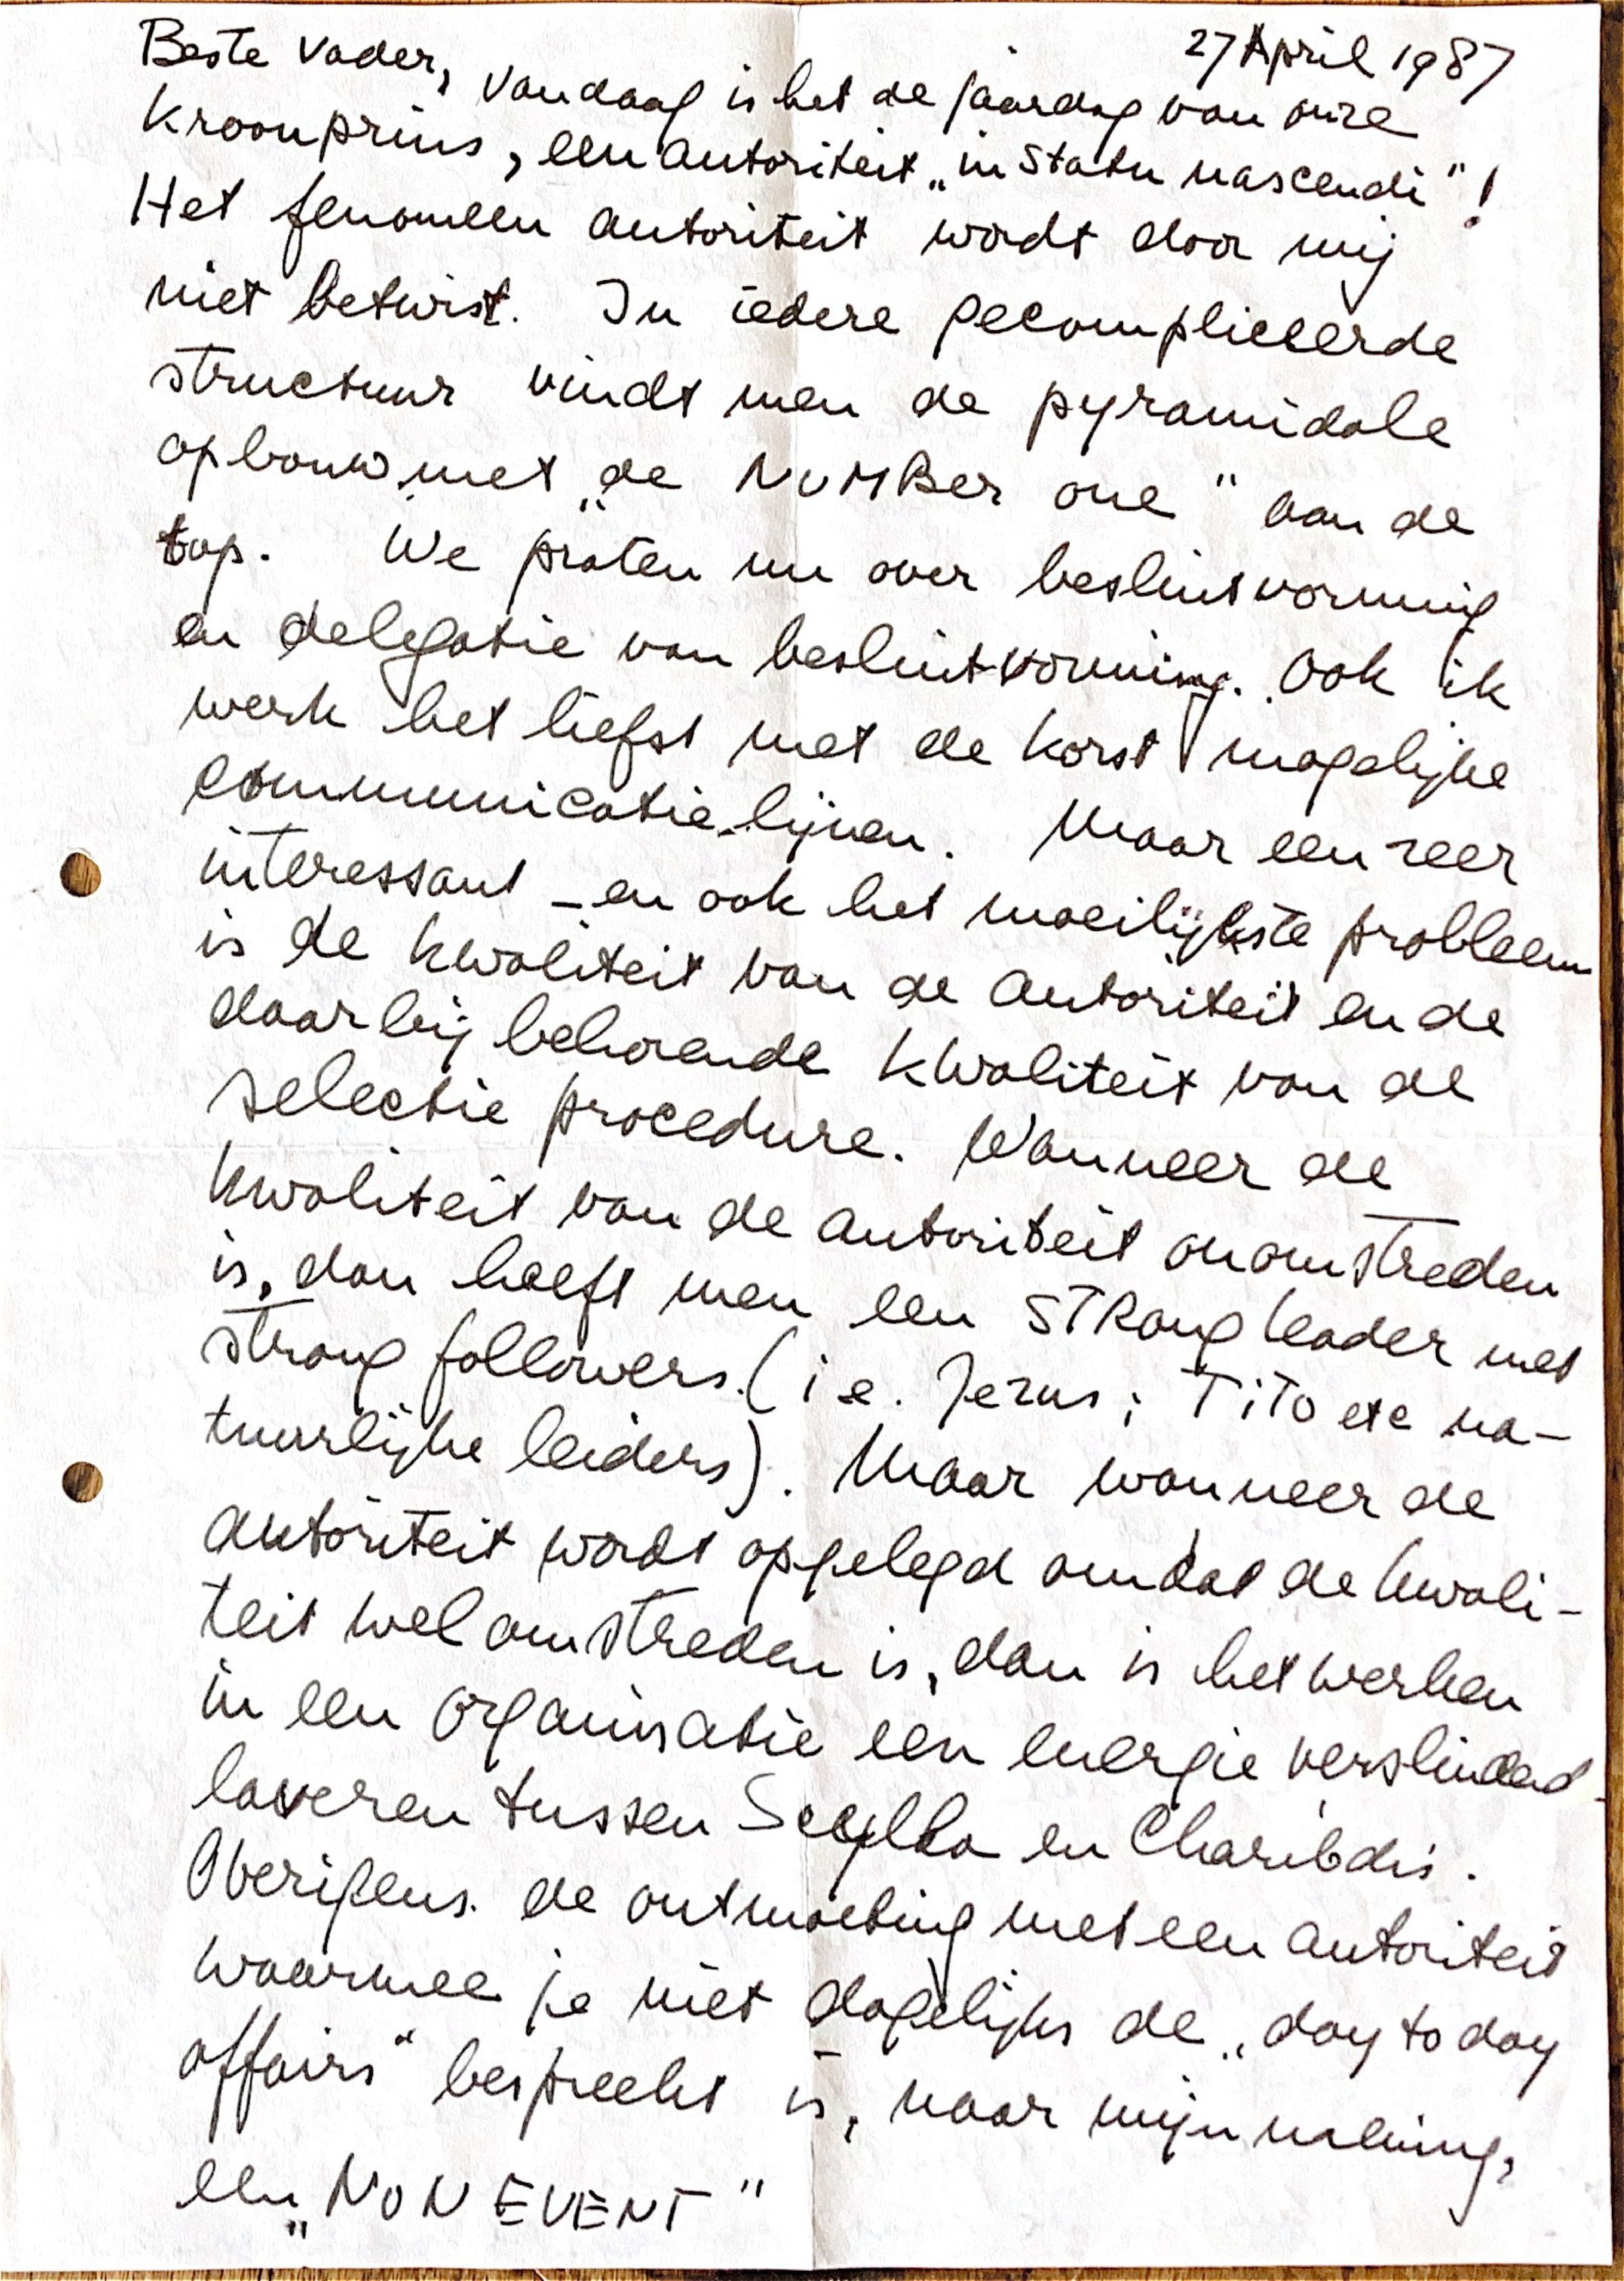 27 April 1987
Beste Vader, Vandaag is het de jaardag van onze
Kroonprins, een autoriteit „in statu nascendi"!
Het fenomeen autoriteit wordt door mij
niet betwist. In iedere gecompliceerde
structuur vindt men de pyramidale
opbouw met „de NUMBer one" aan de
top. We praten nu over besluitvorming
en delegatie van besluitvorming. Ook ik
werk het liefst met de korst mogelijke
communicatie-lijnen. Maar een zeer
interessant - en ook het moeilijkste probleem
is de kwaliteit van de autoriteit en de
daarbij behorende kwaliteit van de
selectie procedure. Wanneer de
kwaliteit van de autoriteit onomstreden
is, dan heeft men een STRong leader met
strong followers. (i e. Jezus; TiTo etc na-
tuurlijke leiders). Maar wanneer de
autoriteit wordt opgelegd omdat de kwali-
teit wel omstreden is, dan is het werken
in een organisatie een energie verslindend
laveren tussen Scylla en Charibdis.
Overigens. de ontmoeting met een autoriteit
waarmee je niet dagelijks de „day to day
affairs" bespreekt is, naar mijn mening,
een „NON EVENT"